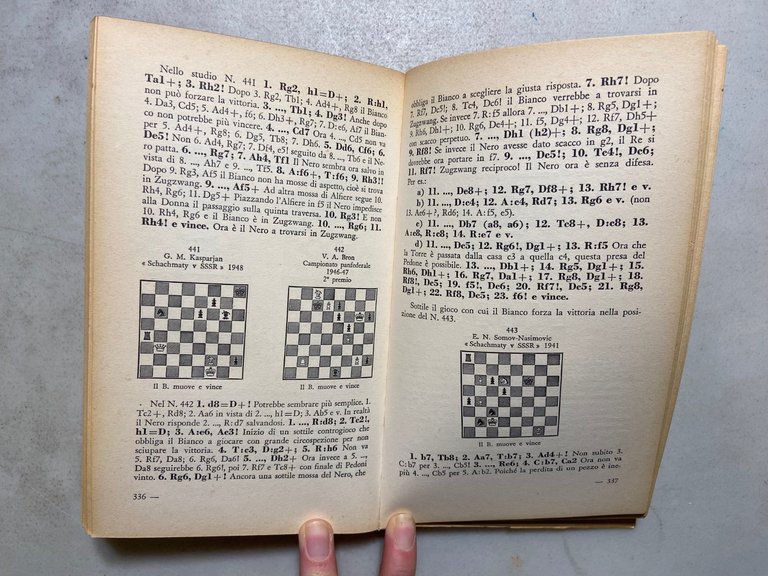 Nello studio N. 441 1. Rg2, h1=D+; 2. R:h1,
Ta1+; 3. Rh2! Dopo 3. Rg2, Tb1; 4. Ad4+, Rg8 il Bianco
non può forzare la vittoria. 3. ..., Tb1; 4. Dg3! Anche dopo
4. Da3, Cd5; 5. Ad4+, f6; 6. Dh3+, Rg7; 7. D:e6, Af7 il Bian-
co non potrebbe più vincere. 4. ..., Cd7 Ora 4. ..., Cd5 non va
per 5. Ad4+, Rg8; 6. Dg5, Tb8; 7. Dh6. 5. Dd6, Cf6; 6.
De5! Non 6. Ad4, Rg7; 7. Df4, e5! seguito da 8. ..., Th6 e il Ne-
ro patta. 6. ..., Rg7; 7. Ah4, Tf1 Il Nero sembra ora salvo in
vista di 8. ..., Ah7 e 9. ..., Tf5. 8. A:f6+, T:f6; 9. Rh3!!
Dopo 9. Rg3, Af5 il Bianco non ha mosse di aspetto, cioè si trova
in Zugzwang. 9. ..., Af5+ Ad altra mossa di Alfiere segue 10.
Rh4, Rg6; 11. Dg5+ Piazzando l'Alfiere in f5 il Nero impedisce
alla Donna il passaggio sulla quinta traversa. 10. Rg3! E non
10. Rh4, Rg6 e il Bianco è in Zugzwang. 10. ..., Rg6; 11.
Rh4! e vince. Ora è il Nero a trovarsi in Zugzwang.
441
G. M. Kasparjan
« Schachmaty v SSSR » 1948
Il B. muove e vince
442
V. A. Bron
Campionato panfederale
1946-47
2° premio
Il B. muove e vince
Nel N. 442 1. d8=D+! Potrebbe sembrare più semplice. 1.
Tc2+, Rd8; 2. Aa6 in vista di 2. ..., h1=D; 3. Ab5 e v. In realtà
il Nero risponde 2. ..., R:d7 salvandosi. 1. ..., R:d8; 2. Tc2!,
h1=D; 3. A:e6, Ae3! Inizio di un sottile controgioco che
obbliga il Bianco a giocare con grande circospezione per non
sciupare la vittoria. 4. T:c3, D:g2+; 5. R:h6 Non va
5. Rf7, Da8; 6. Rg6, Da6! 5. ..., Dh2+ Ora invece a 5. ...,
Da8 seguirebbe 6. Rg6!, poi 7. Rf7 e Tc8+ con finale di Pedoni
vinto. 6. Rg6, Dg1+! Ancora una sottile mossa del Nero, che
336 —
obbliga il Bianco a scegliere la giusta risposta. 7. Rh7! Dopo
7. Rf7, Dc5!; 8. Tc4, Dc6! il Bianco verrebbe a trovarsi in
Zugzwang. Se invece 7. R:f5 allora 7. ..., Db1+; 8. Rg5, Dg1+;
9. Rh6, Dh1+; 10. Rg6, De4+; 11. f5, Dg4+; 12. Rf7, Dh5+
con scacco perpetuo. 7. ..., Dh1 (h2)+; 8. Rg8, Dg1+;
9. Rf8! Se invece il Nero avesse dato scacco in g2, il Re si
dovrebbe ora portare in f7. 9. ..., Dc5!; 10. Tc4!, Dc6;
11. Rf7! Zugzwang reciproco! Il Nero ora è senza difesa.
Per es.:
a) 11. ..., De8+; 12. Rg7, Df8+; 13. Rh7! e v.
b) 11. ..., D:c4; 12. A:c4, Rd7; 13. Rg6 e v. (non
13. Ae6+?, Rd6; 14. A:f5, e5).
c) 11. ..., Db7 (a8, a6); 12. Tc8+, D:c8; 13.
A:c8, R:c8; 14. R:e7 e v.
d) 11. ..., Dc5; 12. Rg6!, Dg1+; 13. R:f5 Ora che
la Torre è passata dalla casa c3 a quella c4, questa presa del
Pedone è possibile. 13. ..., Db1+; 14. Rg5, Dg1+; 15.
Rh6, Dh1+; 16. Rg7, Da1+; 17. Rg8, Dg1+; 18.
Rf8!, Dc5; 19. f5!, Dc6; 20. Rf7!, Dc5; 21. Rg8,
Dg1+; 22. Rf8, Dc5; 23. f6! e vince.
Sottile il gioco con cui il Bianco forza la vittoria nella posi-
zione del N. 443.
443
E. N. Somov-Nasimovic
« Schachmaty v SSSR » 1941
Il B. muove e vince
1. b7, Tb8; 2. Aa7, T:b7; 3. Ad4+! Non subito 3.
C:b7 per 3. ..., Cb5! 3. ..., Re6; 4. C:b7, Ca2 Ora non va
più 4. ..., Cb5 per 5. A:b2. Poiché la perdita di un pezzo è ine-
— 337